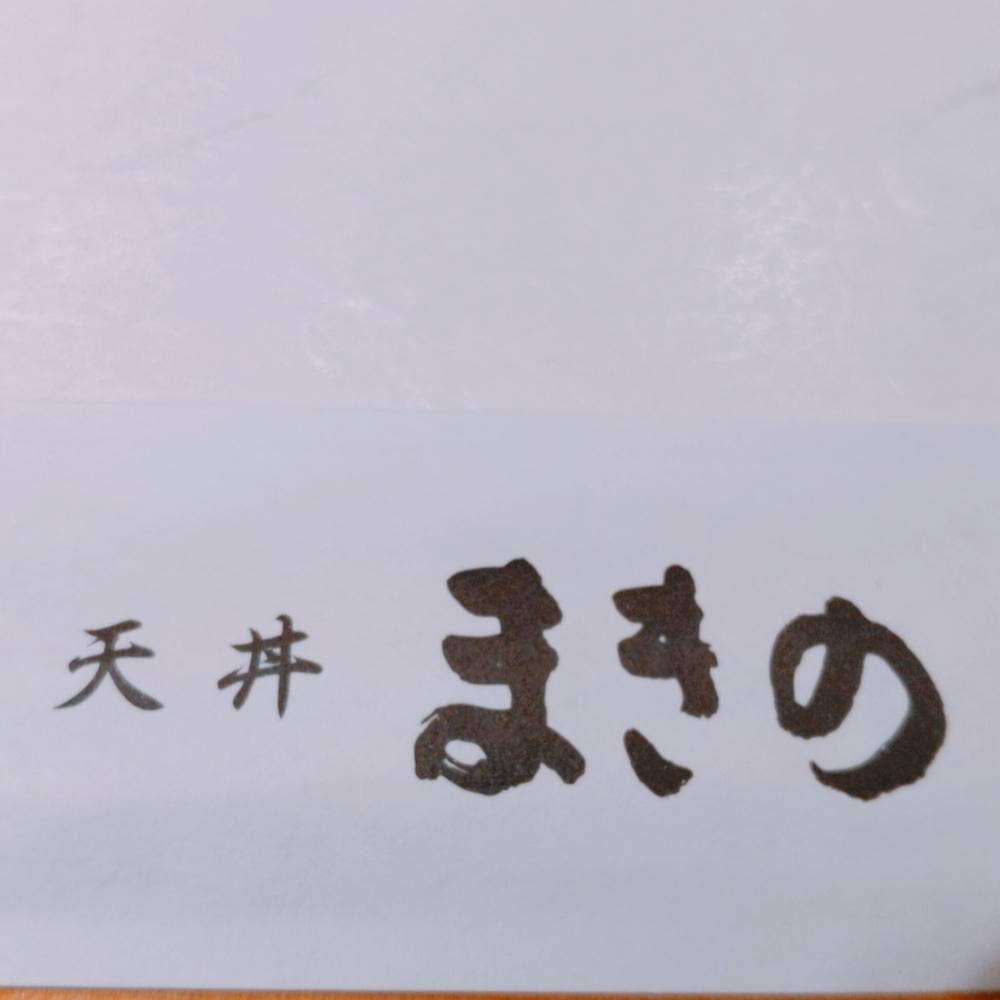 天丼 まきの